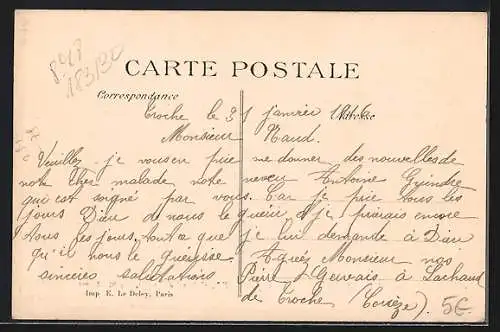 848
183130
CARTE POSTALE
Correspondance
Adresse
Troche le 31 janvier 1916
Monsieur Naud.
Veuillez je vousen prie me donner des nouvelles de
notre cher malade notre neveu Antoine
qui est soigné par vous. Car je prie tous les
jours Dieu de nous le guérir, et je prierais encore
tous les jours, tout ce que je lui demande à Dieu
qu'il nous le guérisse Agréez Monsieur nos
sincères salutations Pierre Gervais à Lachaud
de Troche (Corrèze).
5€
Imp. E. Le Deley, Paris